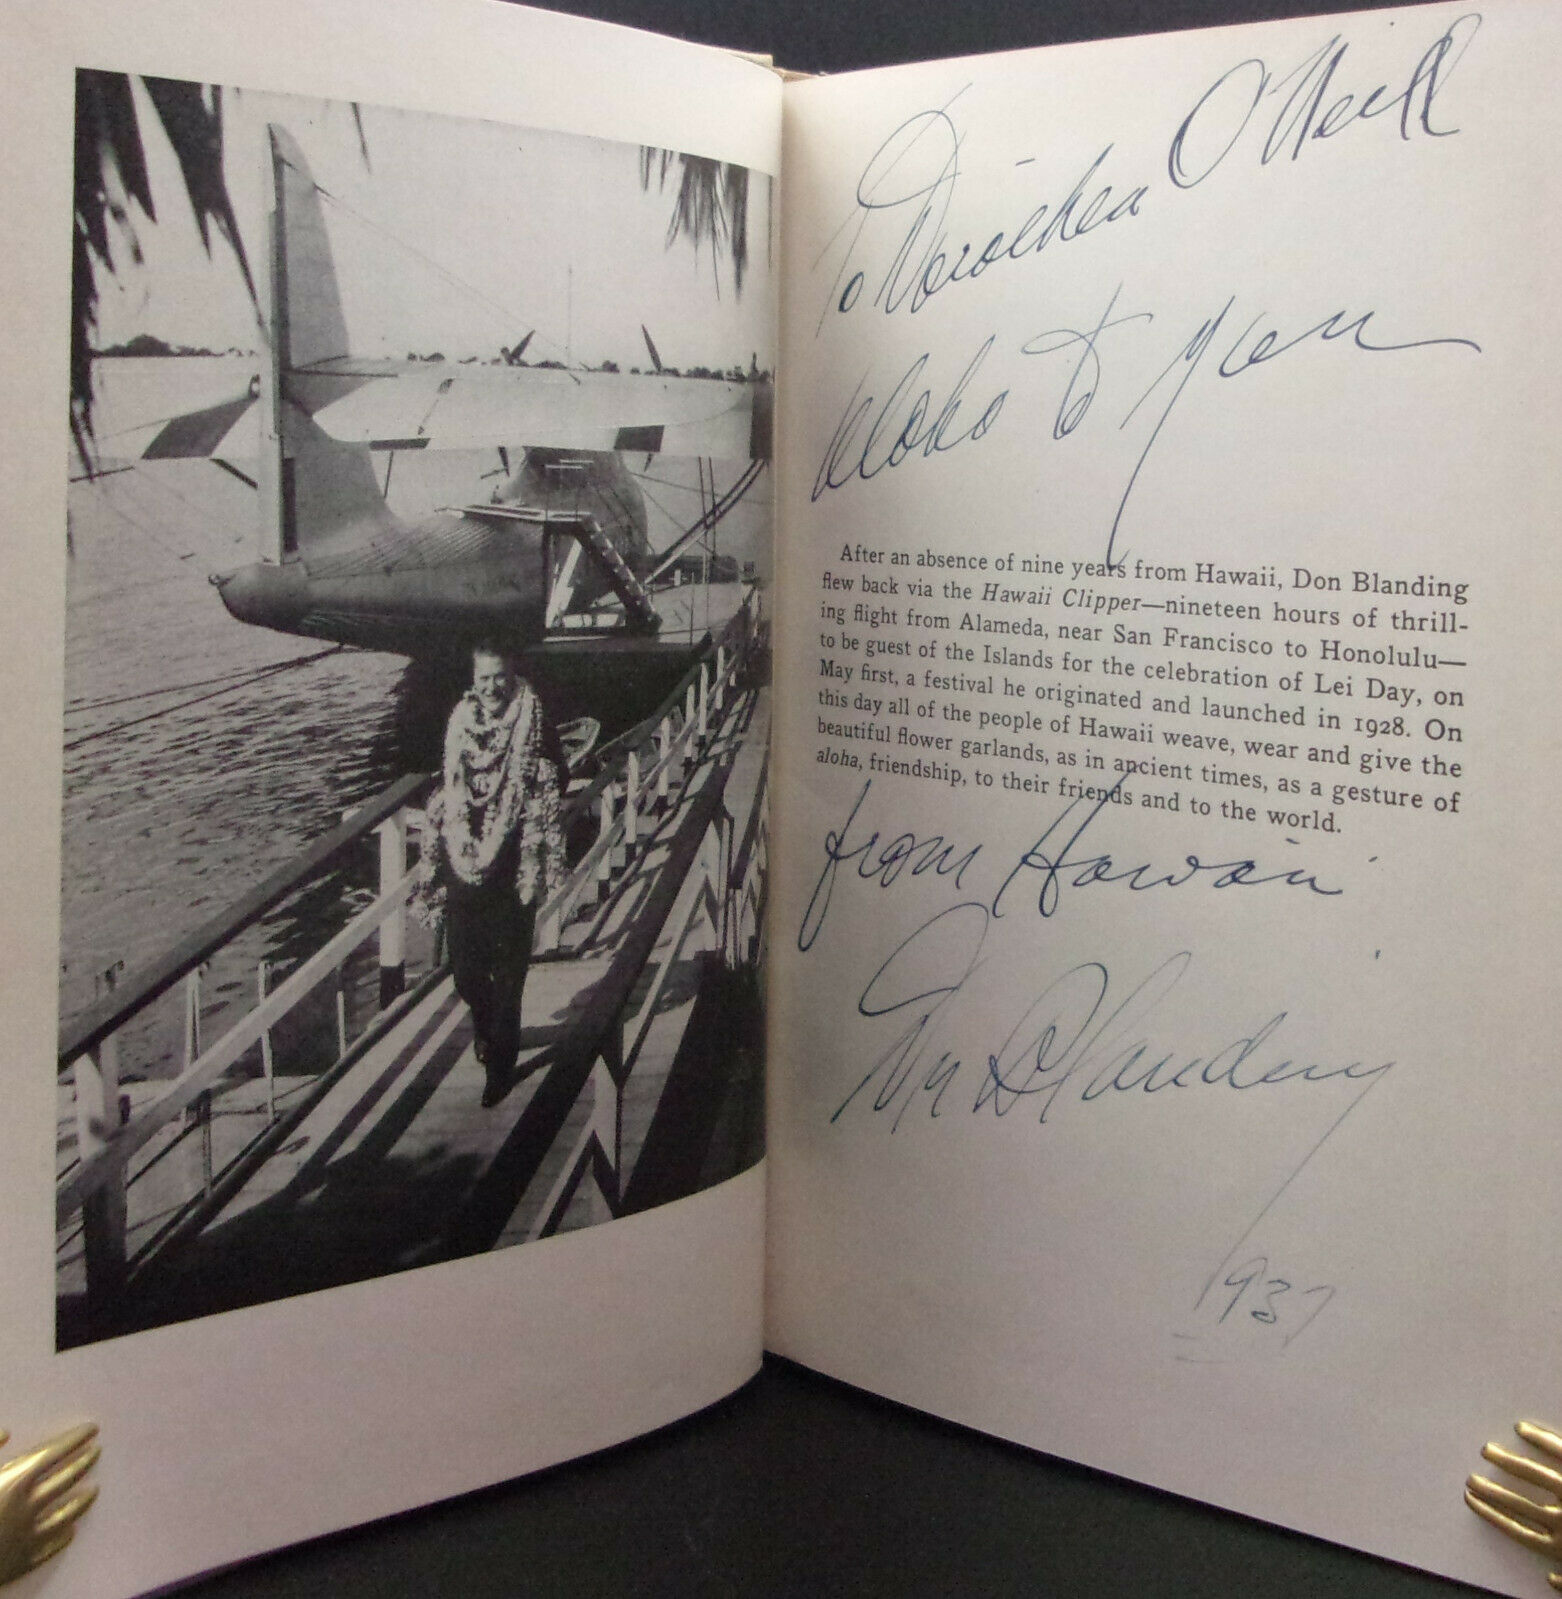 To Dorothea O'Neill
aloha to you
After an absence of nine years from Hawaii, Don Blanding
flew back via the Hawaii Clipper—nineteen hours of thrill-
ing flight from Alameda, near San Francisco to Honolulu—
to be guest of the Islands for the celebration of Lei Day, on
May first, a festival he originated and launched in 1928. On
this day all of the people of Hawaii weave, wear and give the
beautiful flower garlands, as in ancient times, as a gesture of
aloha, friendship, to their friends and to the world.
from Hawaii
Don Blanding
1937